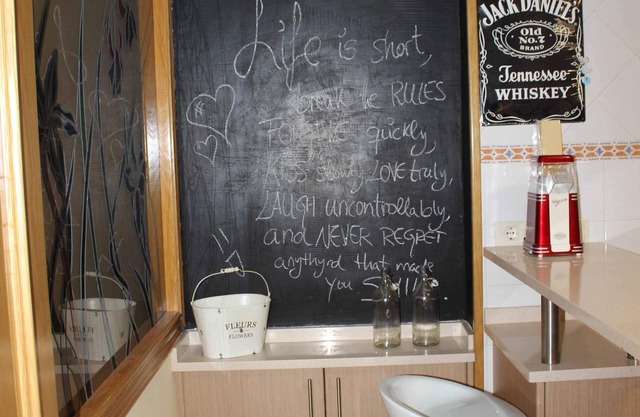 Life is short,
break he RULES
FORGIVE quickly,
KISS slowly, LOVE truly,
LAUGH uncontrollably,
and NEVER REGRET
anythynd that made
you SMILE.
JACK DANIEL'S
Old
No.7
BRAND
Tennessee
WHISKEY
FLEURS
FLOWERS